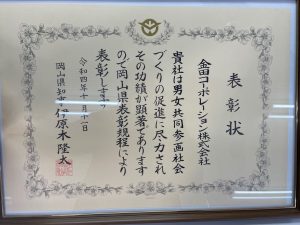 表彰状
金田コーポレーション株式会社
貴社は男女共同参画社会
づくりの促進に尽力され
その功績が顕著であります
ので岡山県表彰規程により
表彰します
令和四年十一月二日
岡山県知事 伊原木隆太